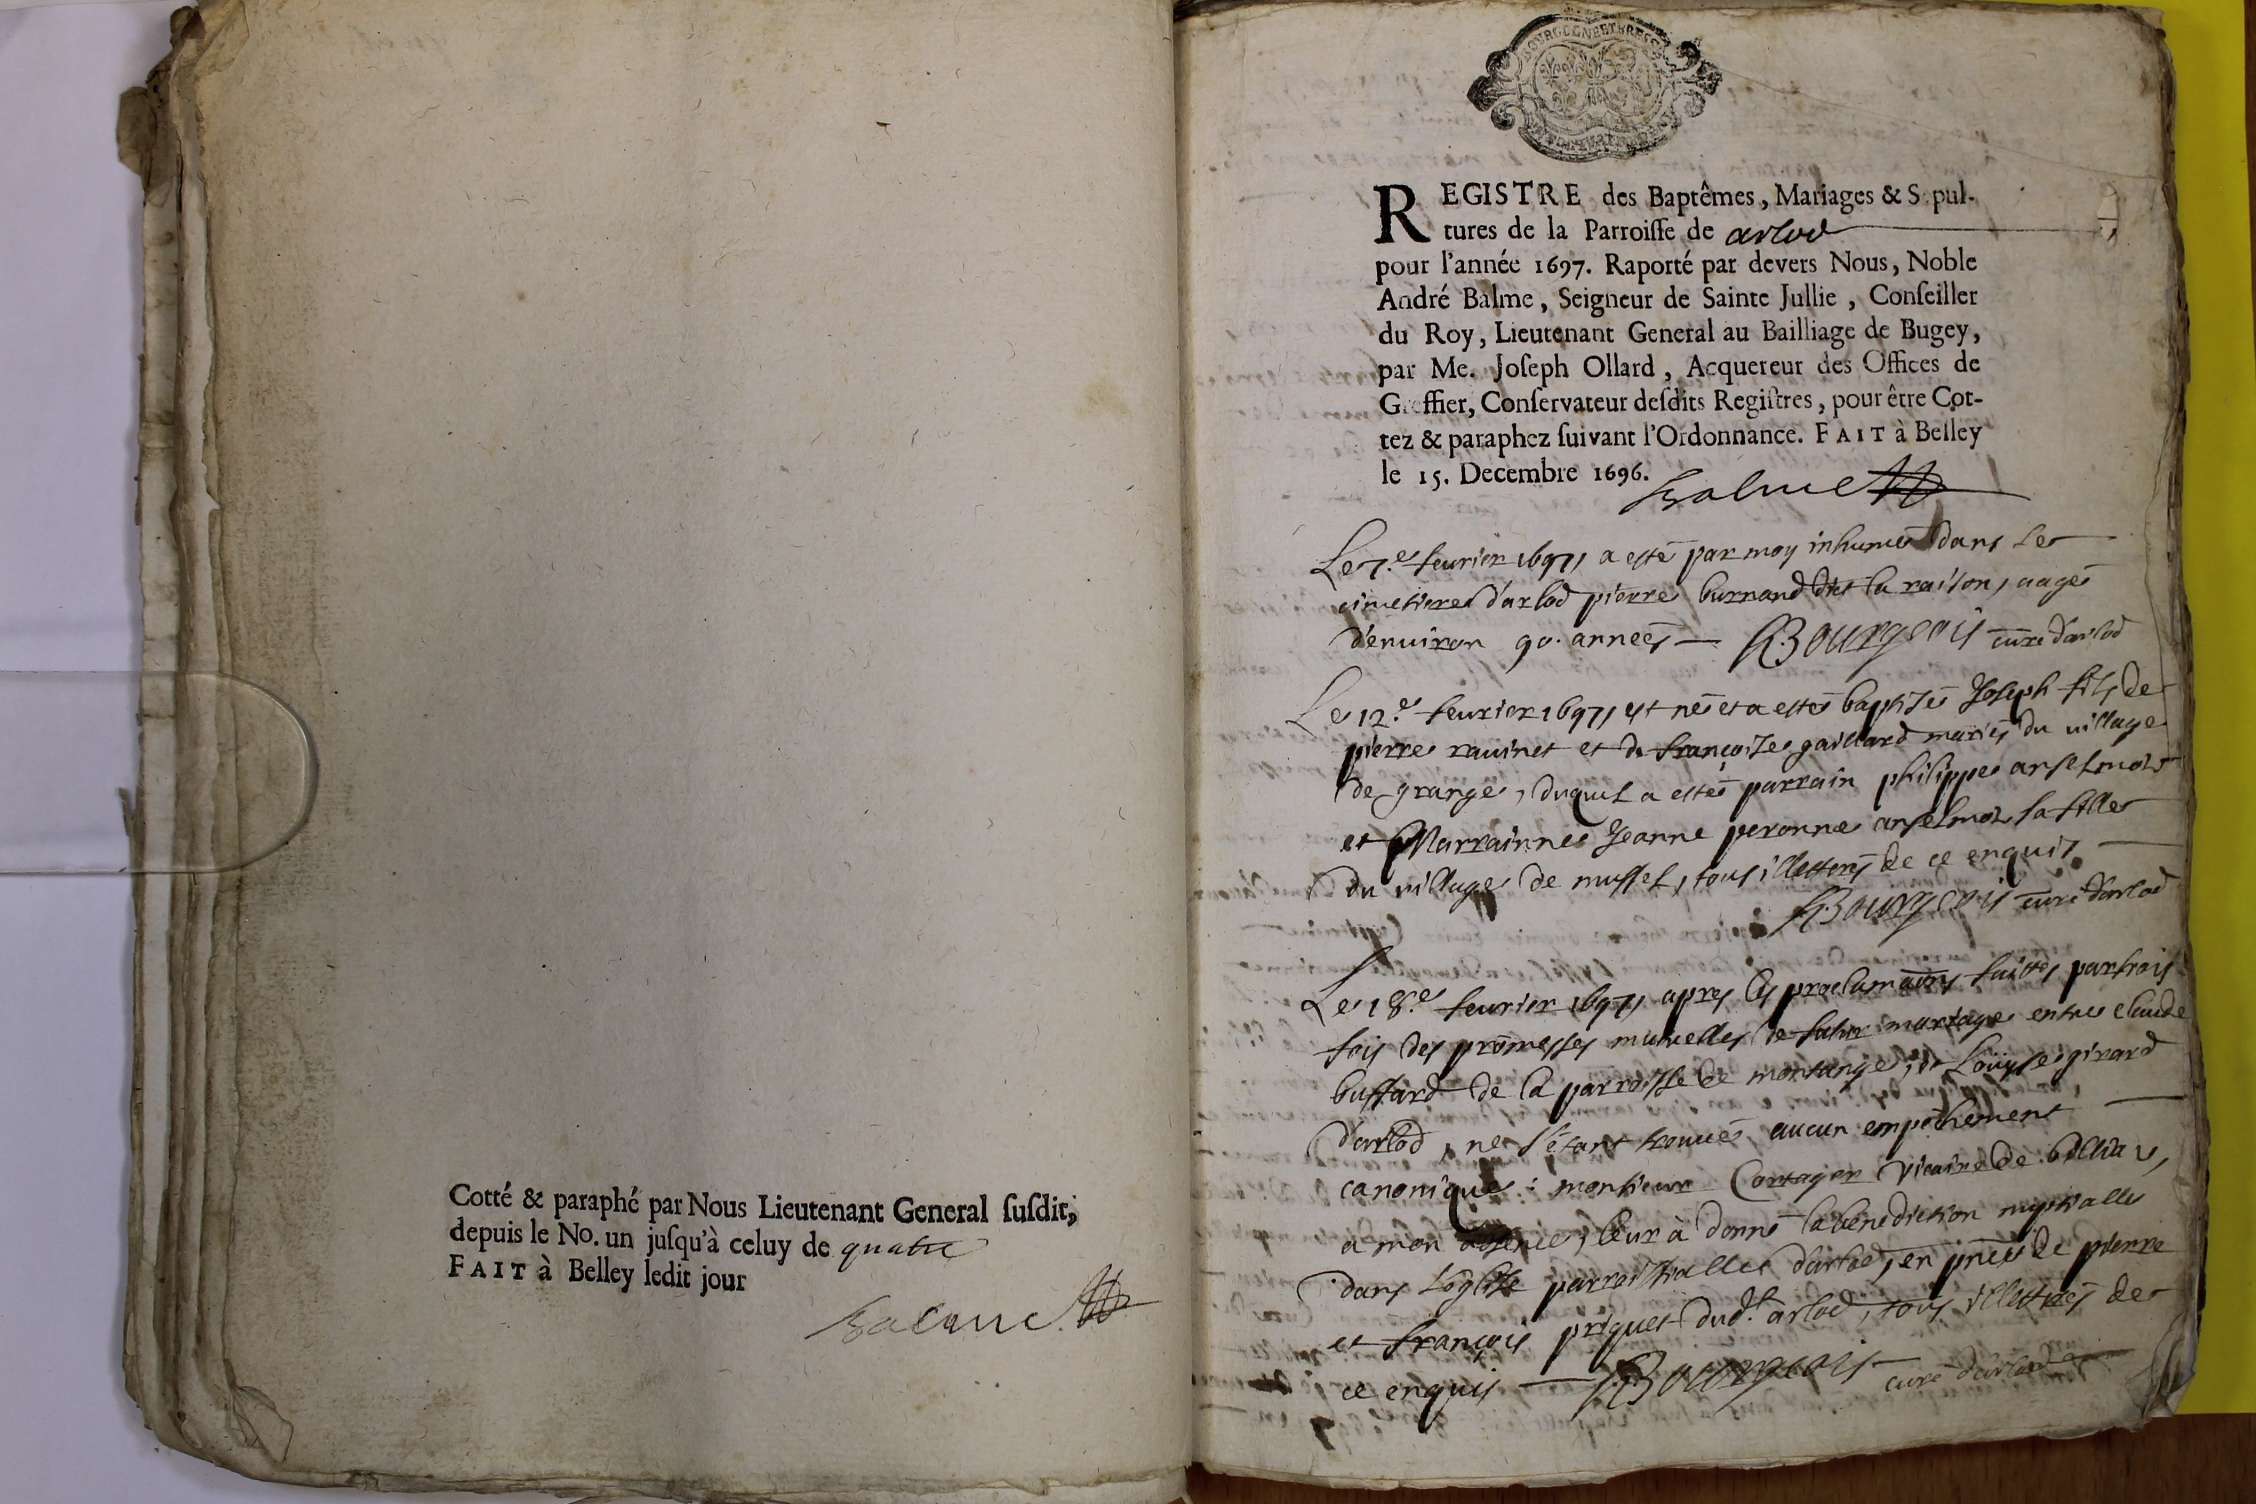 Cotté & paraphé par Nous Lieutenant General ſuſdit,
depuis le No. un juſqu'à celuy de quatre
FAIT à Belley ledit jour
Balme
BOURGOGNE ET BRESSE
REGISTRE des Baptêmes, Mariages & S pul-
tures de la Parroiſſe de arlod
pour l'année 1697. Raporté par devers Nous, Noble
André Balme, Seigneur de Sainte Jullie, Conſeiller
du Roy, Lieutenant General au Bailliage de Bugey,
par Me. Joſeph Ollard, Acquereur des Offices de
Greffier, Conſervateur deſdits Regiſtres, pour être Cot-
tez & paraphez ſuivant l'Ordonnance. FAIT à Belley
le 15. Decembre 1696.
Balme
Le 7.e feurier 1697, a esté par moy inhumé dans le
cimetiere d'arlod pierre burnand dit la raison, aagé
d'enuiron 90. années — Bourgeois curé d'arlod
Le 12.e feurier 1697, est né et a esté baptisé Joseph fils de
pierre rauinet et de françoise gaillard mariés du village
de grange, duquel a esté parrain philippe anselmoz
et Marrainne Jeanne peronne anselmoz sa fille
du village de mussel, tous illettrés de ce enquis
Bourgeois curé d'arlod
Le 18.e feurier 1697, apres les proclamaõns faittes par trois
fois des promesses mutuelles de futur mariage entre claude
buffard de la parroisse de montange, et Loüyse girard
d'arlod, ne s'étant trouué aucun empechement
canonique : monsieur Cartayer vicaire de billia,
a mon absence, leur à donné la benediction nuptialle
dans l'église parroissialle d'arlod, en pñce de pierre
et françois priquet dud.t arlod, tous illettrés de
ce enquis — Bourgeois curé d'arlod